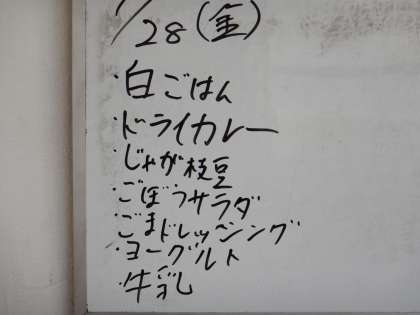 1/28(金)
・白ごはん
・ドライカレー
・じゃが枝豆
・ごぼうサラダ
・ごまドレッシング
・ヨーグルト
・牛乳